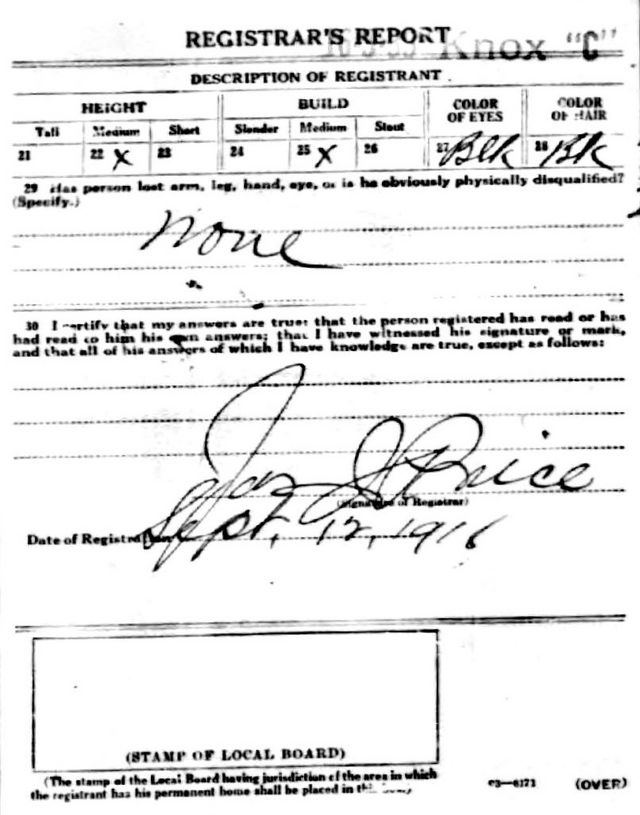 REGISTRAR'S REPORT
Knox "C"
DESCRIPTION OF REGISTRANT
HEIGHT BUILD COLOR OF EYES COLOR OF HAIR
Tall Medium Short Slender Medium Stout
21 22 X 23 24 25 X 26 27 Blk 28 Blk
29 Has person lost arm, leg, hand, eye, or is he obviously physically disqualified?
(Specify.)
None
30 I certify that my answers are true; that the person registered has read or has
had read to him his own answers; that I have witnessed his signature or mark,
and that all of his answers of which I have knowledge are true, except as follows:
Jas J Price
(Signature of Registrar)
Date of Registration Sept. 12, 1918
(STAMP OF LOCAL BOARD)
(The stamp of the Local Board having jurisdiction of the area in which
the registrant has his permanent home shall be placed in this
(OVER)